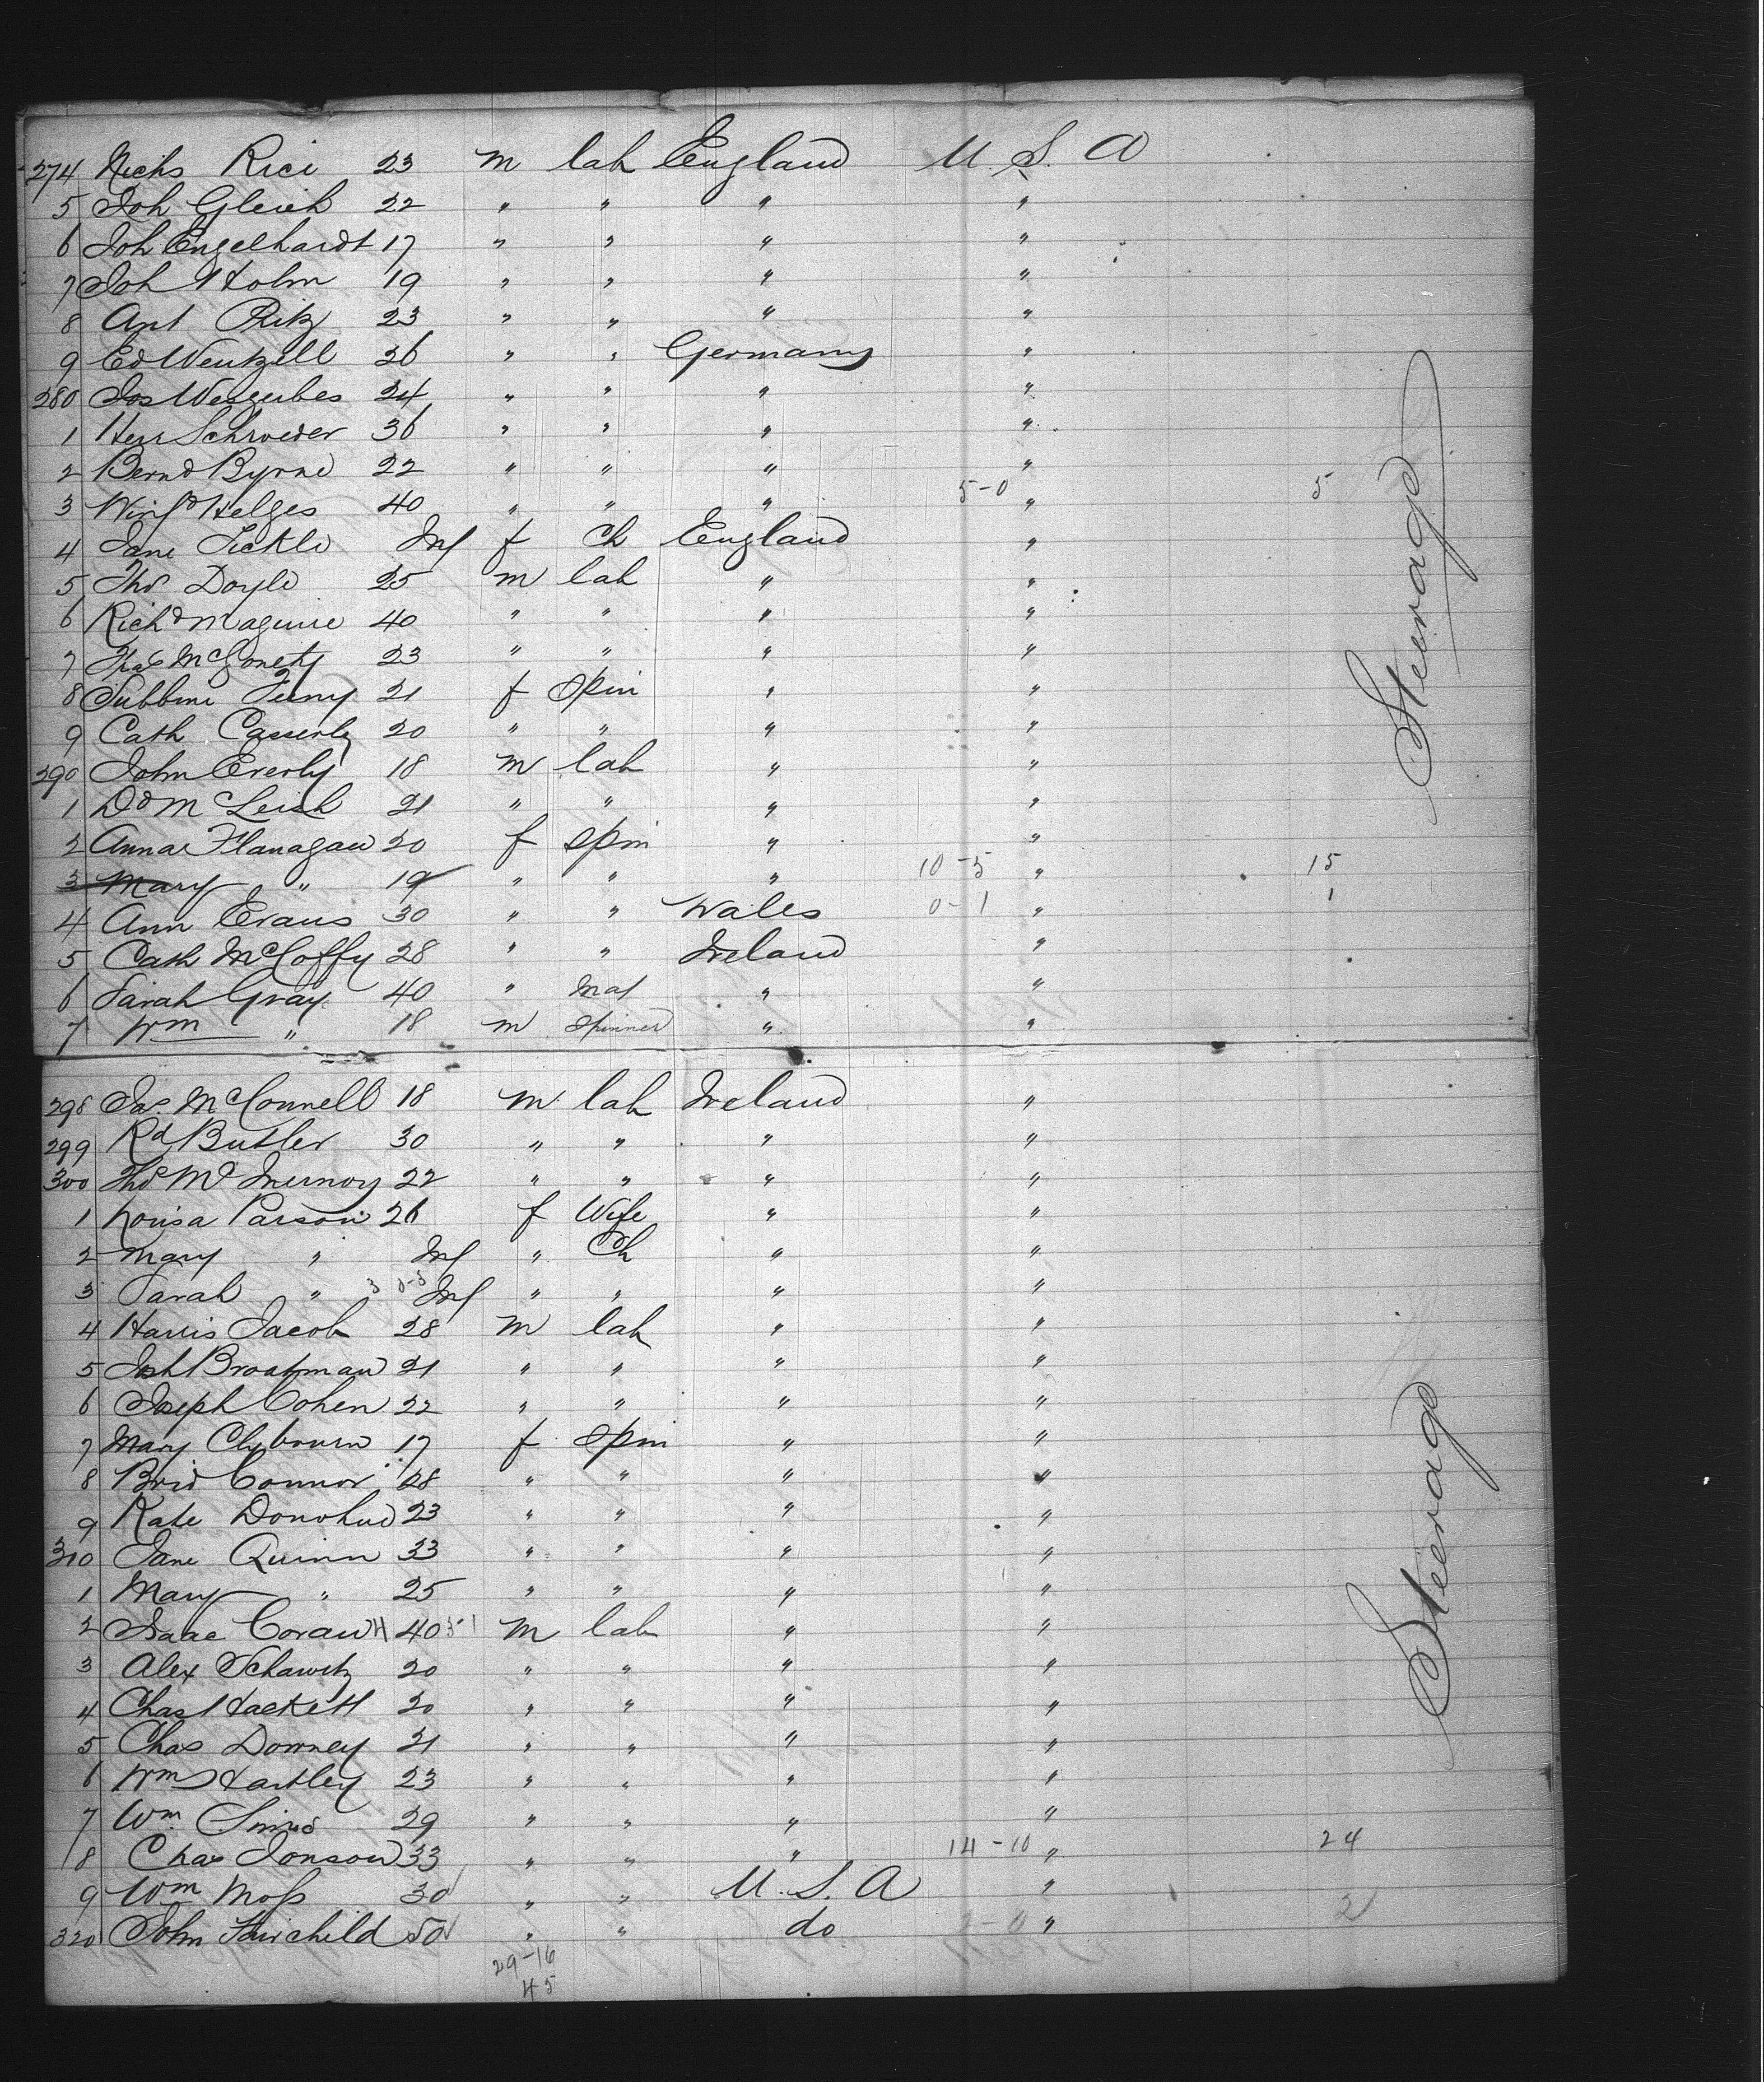 274 Nichs Rice 23 m lab England U. S. A
5 Joh Gleich 22 " " " "
6 Joh Engelhardt 17 " " " "
7 Joh Holm 19 " " " "
8 Ant Ritz 23 " " " "
9 Ed Wentzell 26 " " Germany "
280 Jos 24 " " " "
1 Herr Schroeder 36 " " " "
2 Bernd Byrne 22 " " " "
3 Helges 40 " " " 5-0 " 5
4 Jane Tickle Inf f Ch England "
5 Thos Doyle 25 m lab " "
6 Richd Maguire 40 " " " "
7 23 " " " "
8 21 f Spin " "
9 Cath Casserly 20 " " " "
290 John Everly 18 m lab " "
1 Dd McLeish 21 " " " "
2 Annae Flanagan 20 f Spin " "
3 Mary " 19 " " " 10-5 " 15
4 Ann Evans 30 " " Wales 0-1 " 1
5 Cath McCoffy 28 " " Ireland "
6 Sarah Gray 40 " Mat " "
7 Wm " 18 m Spinner " "
Steerage
298 Jas. McConnell 18 m lab Ireland "
299 Rd Butler 30 " " " "
300 Thos McInernoy 22 " " " "
1 Louisa Parson 26 f Wife " "
2 Mary " Inf " Ch " "
3 Sarah " Inf " " " "
4 Harris Jacob 28 m lab " "
5 Josh Broatman 21 " " " "
6 Joseph Cohen 22 " " " "
7 Mary Clybourn 17 f Spin " "
8 Brid Connor 28 " " " "
9 Kate Donohue 23 " " " "
310 Jane Quinn 33 " " " "
1 Mary " 25 " " " "
2 Isaac Coraw 40 m lab " "
3 Alex Schawitz 20 " " " "
4 Chas Hackett 20 " " " "
5 Chas Downey 21 " " " "
6 Wm Hartley 23 " " " "
7 Wm. Simms 29 " " " "
8 Chas Jonson 33 " " " 14-10 " 24
9 Wm Moss 30 " " U. S. A "
320 John Fairchild 50 " " do 2-0 " 2
29-16
45
Steerage